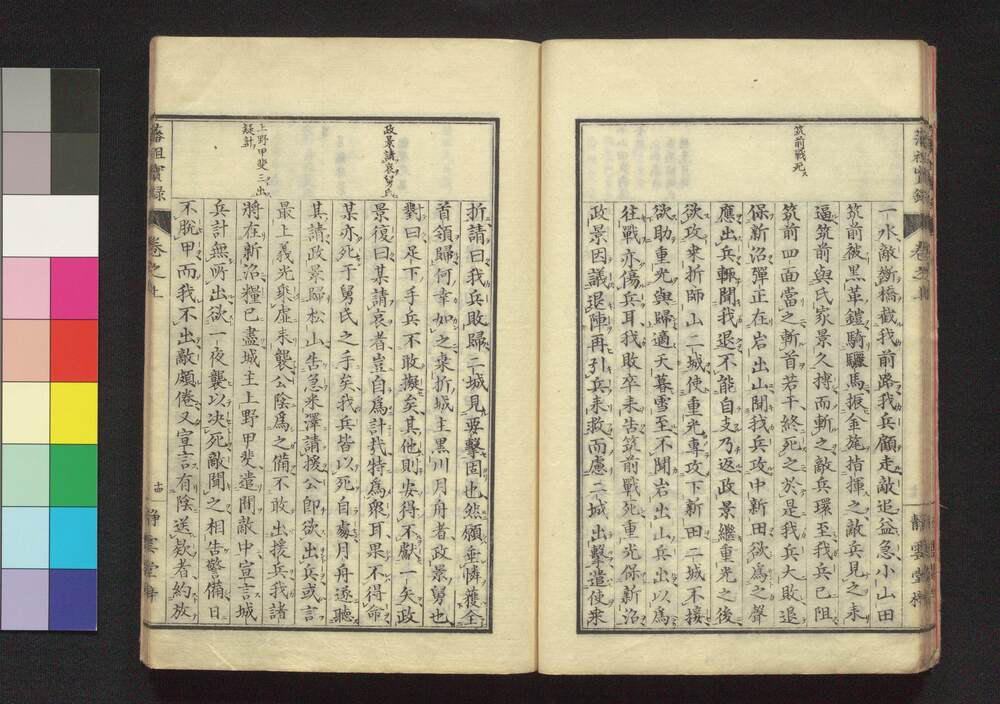 筑前戰死
一水敵斷橋截我前路我兵顧走敵追益急小山田
筑前被黑革鎧騎驪馬振金麾指揮之敵兵見之来
逼筑前與氏家景久搏而斬之敵兵環至我兵已阻
筑前四面當之斬首若干終死之於是我兵大敗退
保新沼彈正在岩出山聞我兵攻中新田欲為之聲
應出兵輒聞我退不能自支乃返政景繼重光之後
欲攻桒折師山二城使重光專攻下新田二城不接
欲助重光與歸適天暮雪至不聞岩出山兵出以為
往戰亦傷兵耳找敗卒来告筑前戰死重光保新沼
政景因議退陣再引兵来救而慮二城出擊遣使桒
政景請哀舅氏
上野甲斐三出
疑計
折請曰我兵敗歸二城見要擊固也然願垂憐獲全
首領歸何幸如之桒折城主黑川月舟者政景舅也
對曰足下手兵不敢擬矣其他則安得不獻一矢政
景復曰某請哀者豈自為計哉特為衆耳果不得命
某亦死于舅氏之手矣我兵皆以死自處月舟遂聽
其請政景歸松山告急米澤請援公即欲出兵或言
最上義光乘虛来襲公陰為之備不敢出援兵我諸
將在新沼糧已盡城主上野甲斐遣間敵中宣言城
兵計無所出欲一夜襲以决死敵聞之相告警備日
不脫甲而我不出敵頗倦又宣言有陰送欵者約放
藩祖實録
卷之上
十四
靜雲堂梓